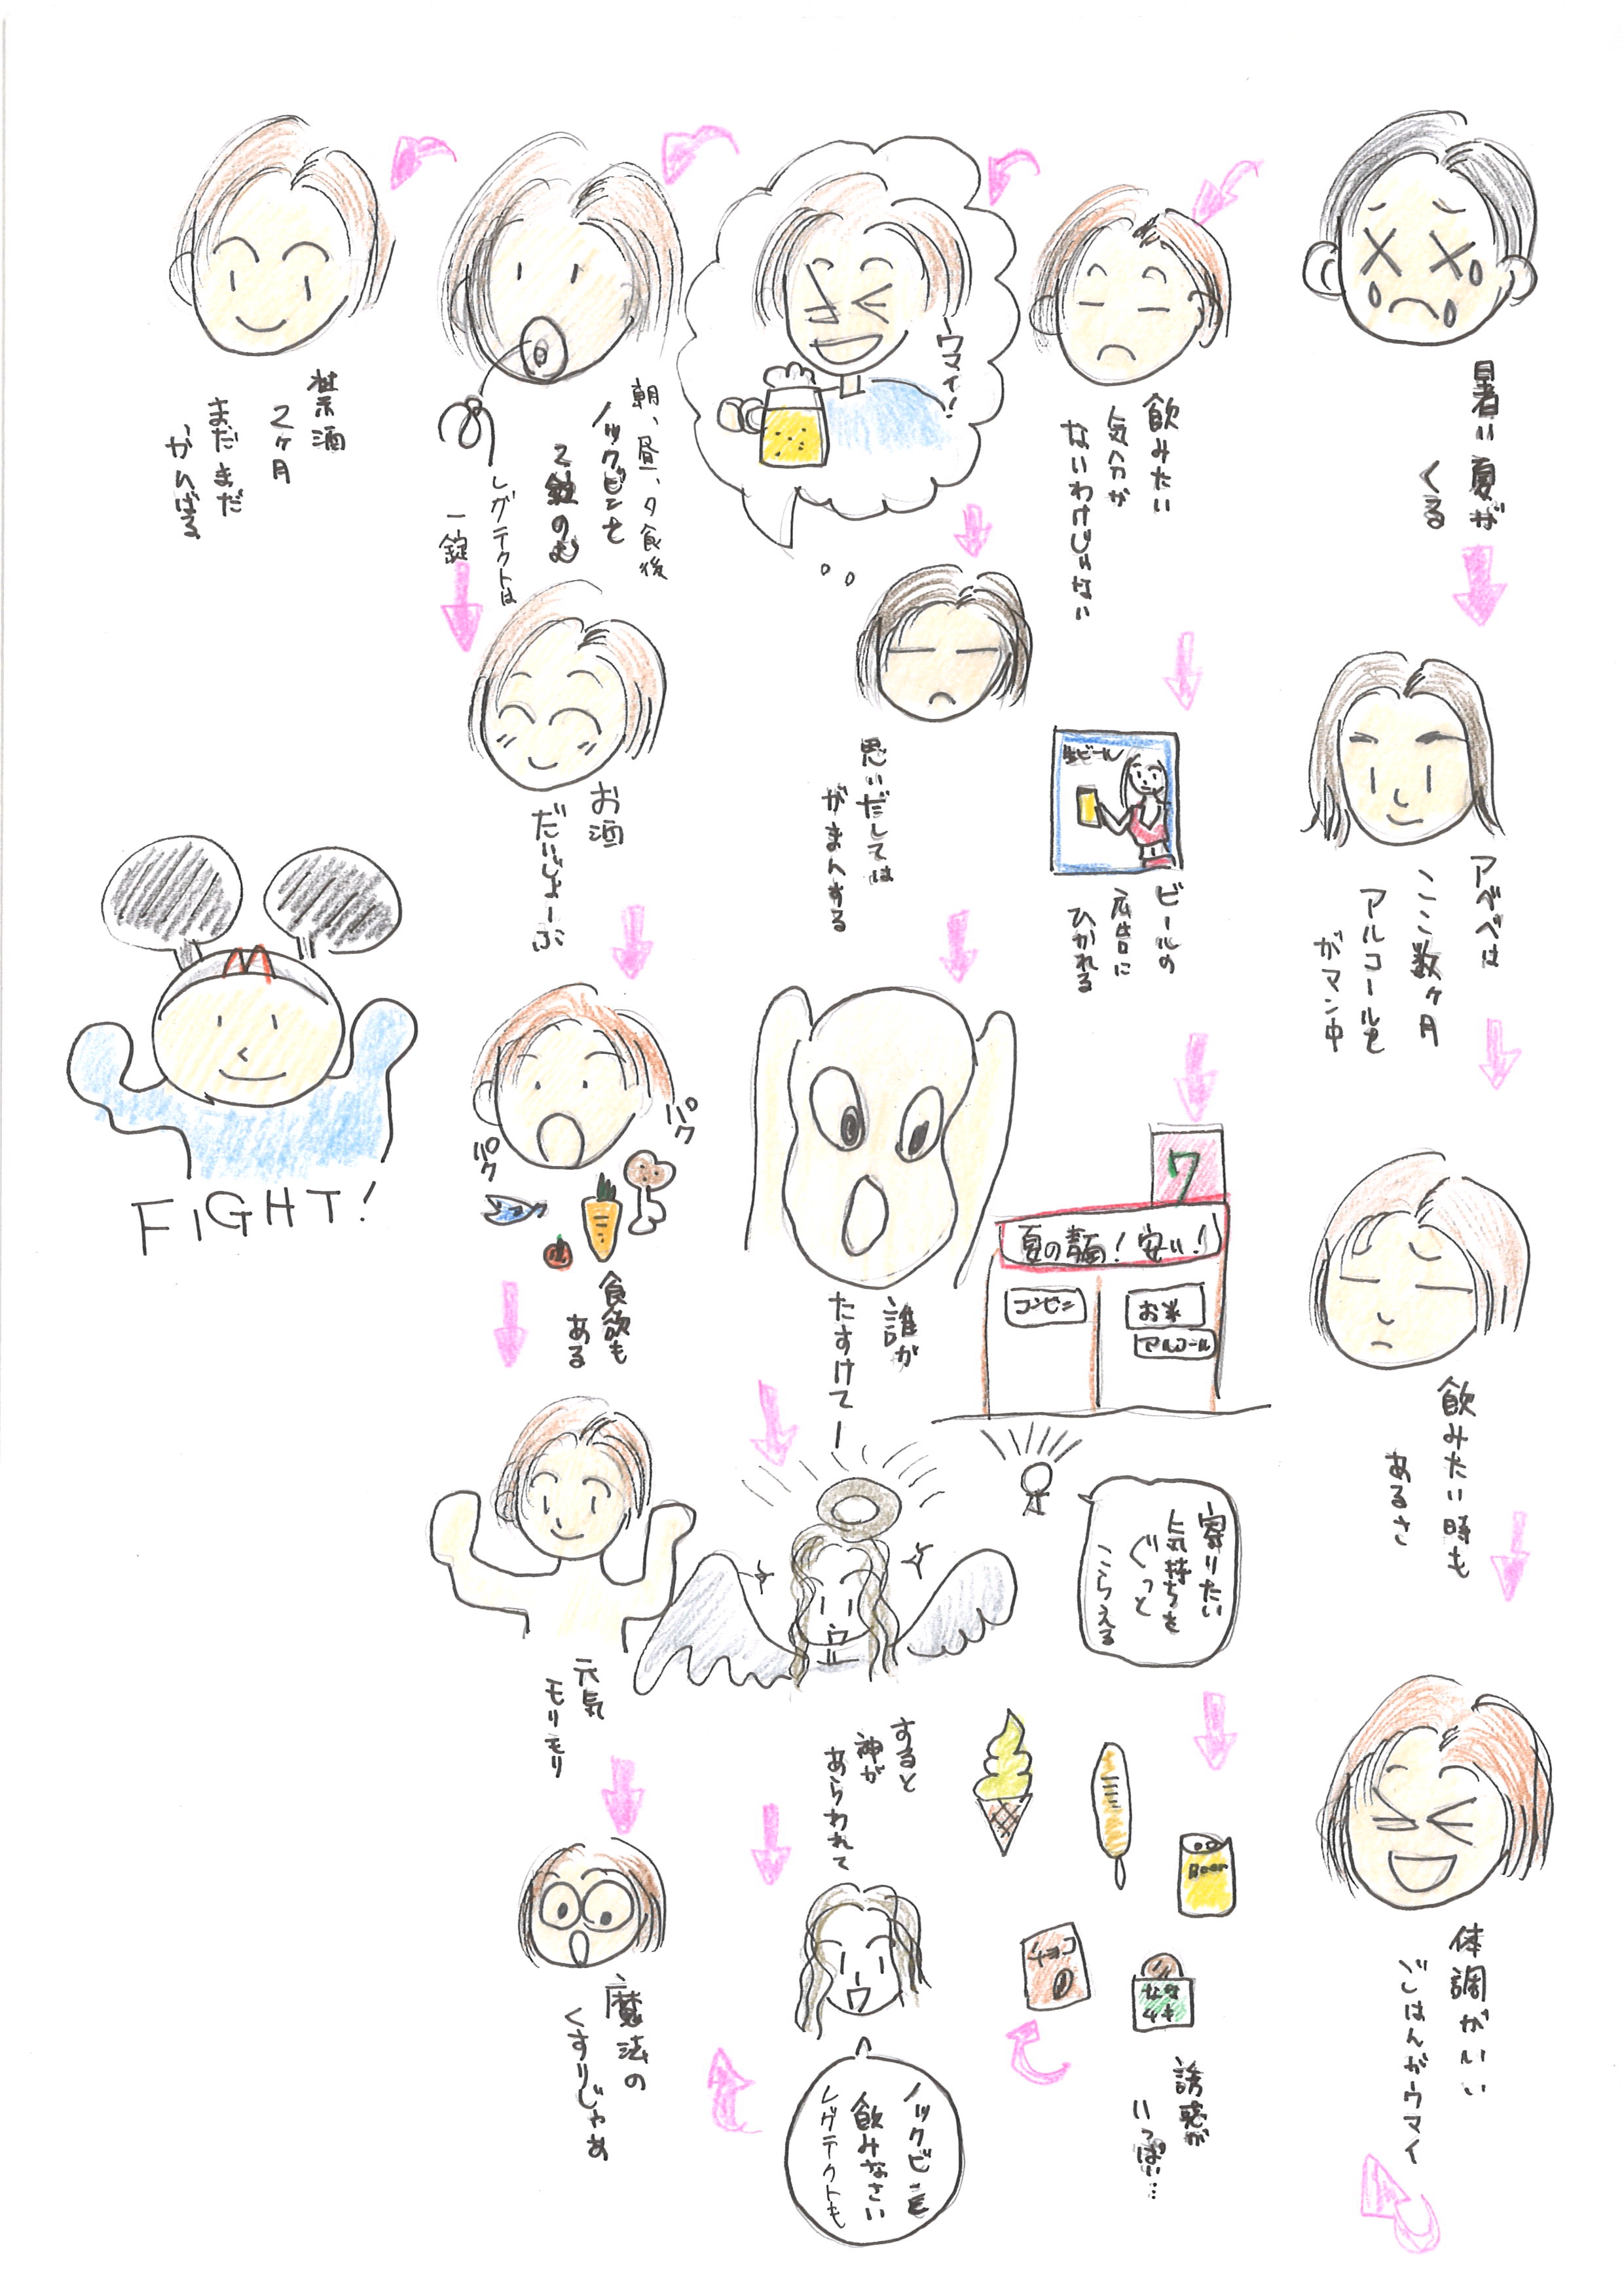 暑い夏が
くる
アベベは
ここ数ヶ月
アルコールを
ガマン中
飲みたい時も
あるさ
体調がいい
ごはんがウマイ
飲みたい
気分が
ないわけじゃない
生ビール
ビールの
広告に
ひかれる
7
夏の麺!安い!
コンビニ
お米
アルコール
寄りたい
気持ちを
ぐっと
こらえる
Beer
チョコ
誘惑が
いっぱい…
ウマイ!
思いだしては
がまんする
誰が
たすけてー
すると
神が
あらわれて
ノックビンを
飲みなさい
レグテクトも
朝、昼、夕食後
ノックビンを
2錠のむ
レグテクトは
一錠
お酒
だいじょーぶ
パク
パク
食欲も
ある
元気
モリモリ
魔法の
くすりじゃあ
禁酒
2ヶ月
まだまだ
がんばる
FIGHT!